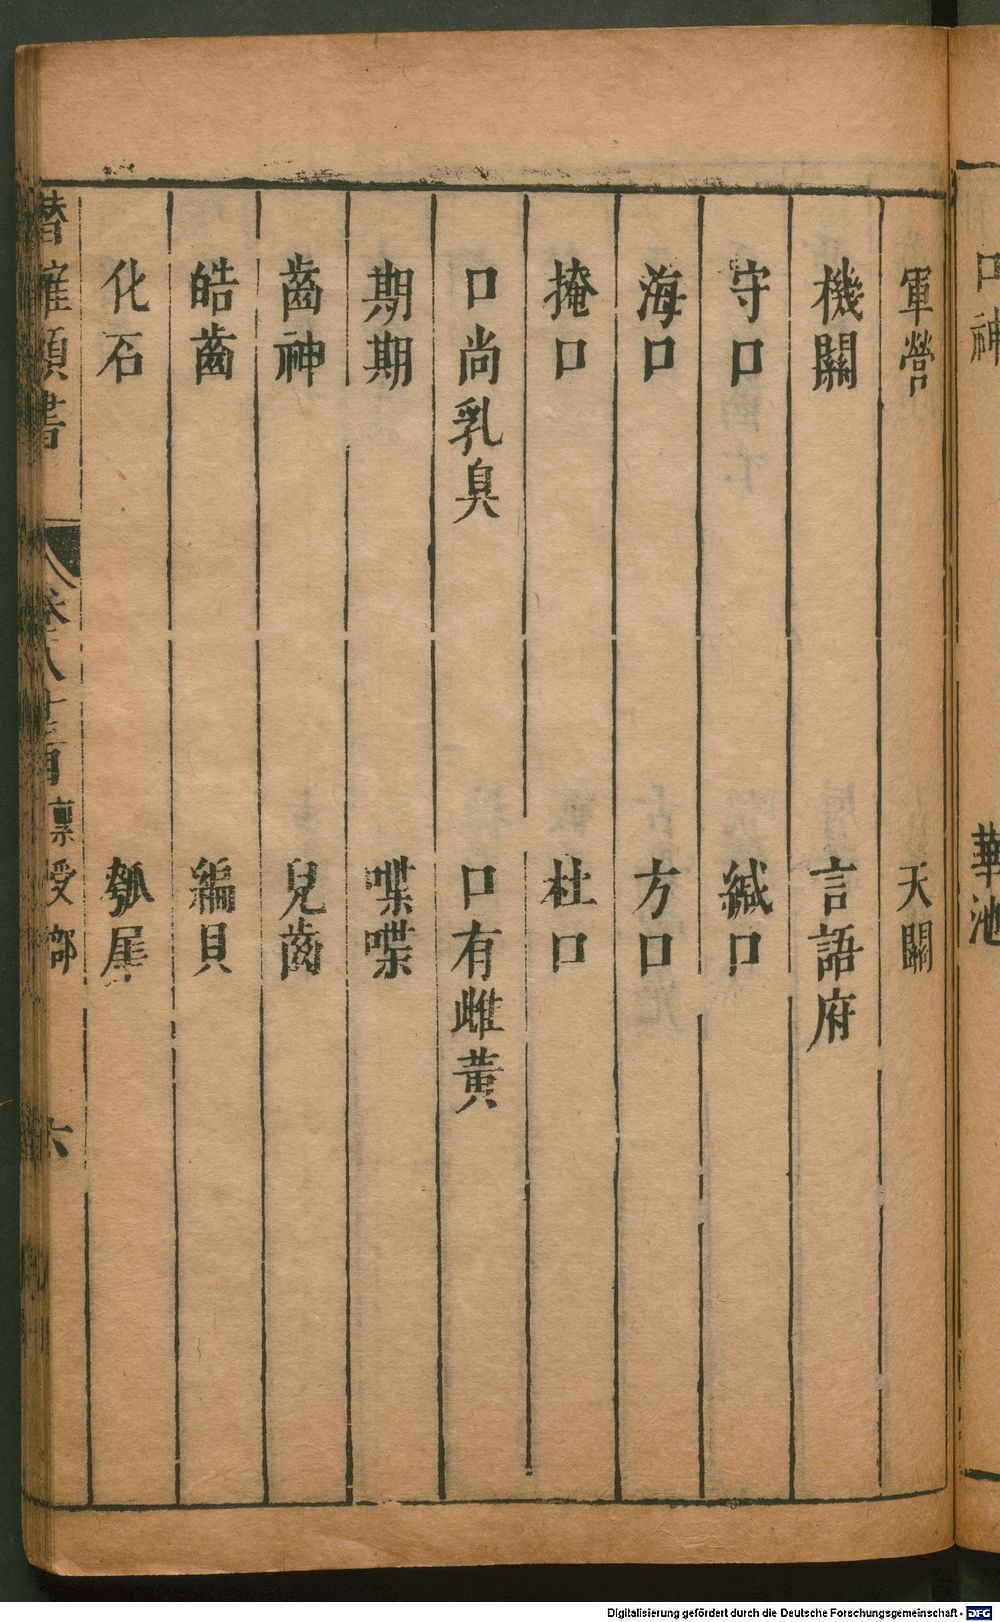 口神 華池
軍營 天關
機關 言語府
守口 緘口
海口 方口
掩口 杜口
口尚乳臭 口有雌黃
期期 喋喋
齒神 兒齒
皓齒 編貝
化石 瓠犀
潛確類書 卷八十 稟受部 六
Digitalisierung gefördert durch die Deutsche Forschungsgemeinschaft - DFG